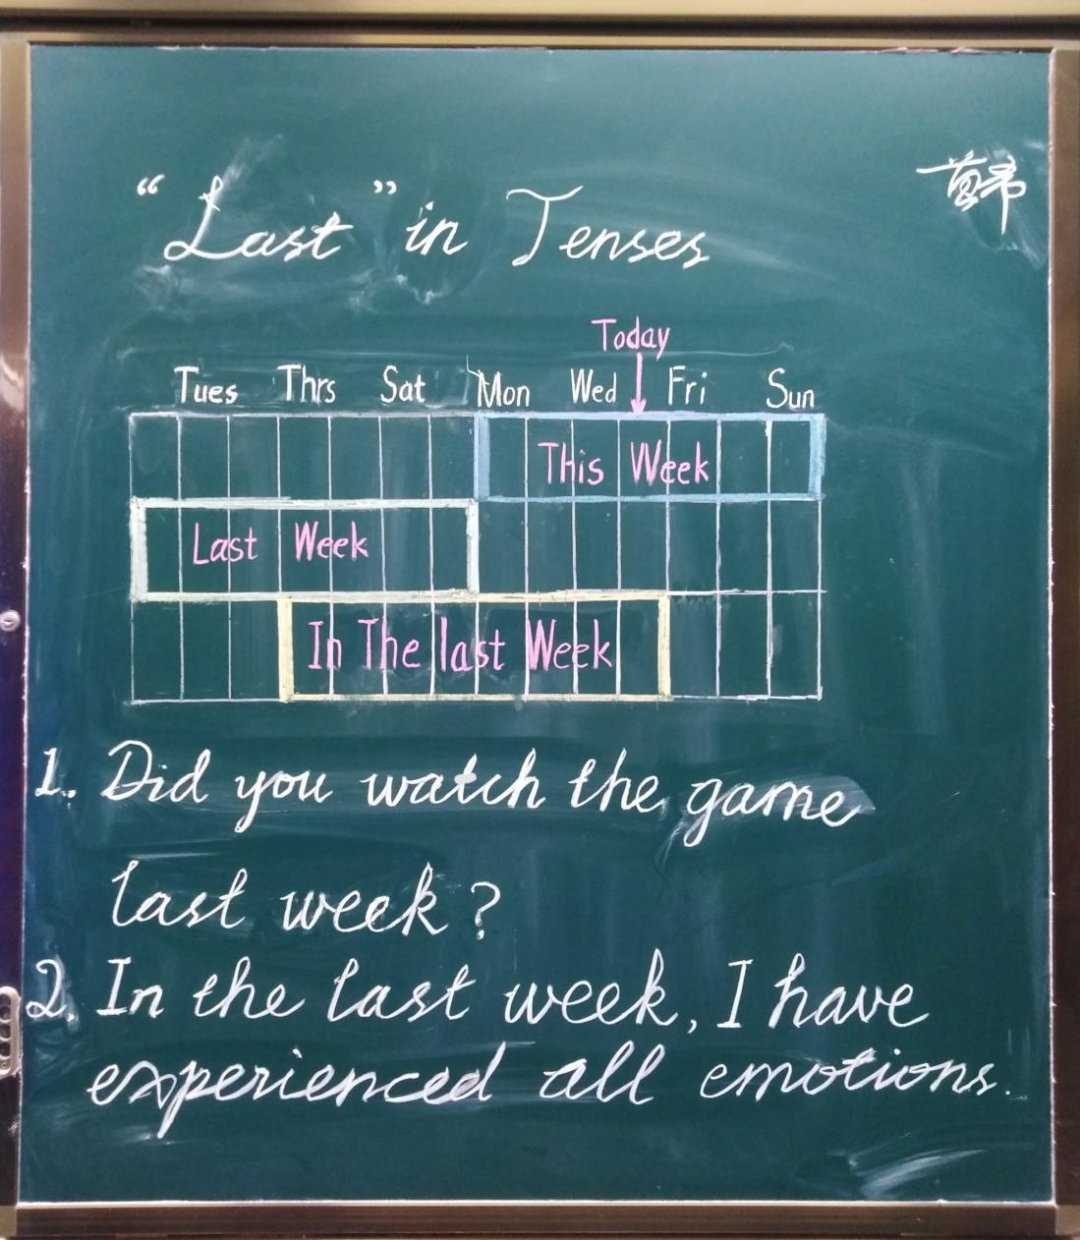 “Last” in Tenses
Today
Tues Thrs Sat Mon Wed Fri Sun
This Week
Last Week
In The last Week
1. Did you watch the game
last week?
2. In the last week, I have
experienced all emotions.